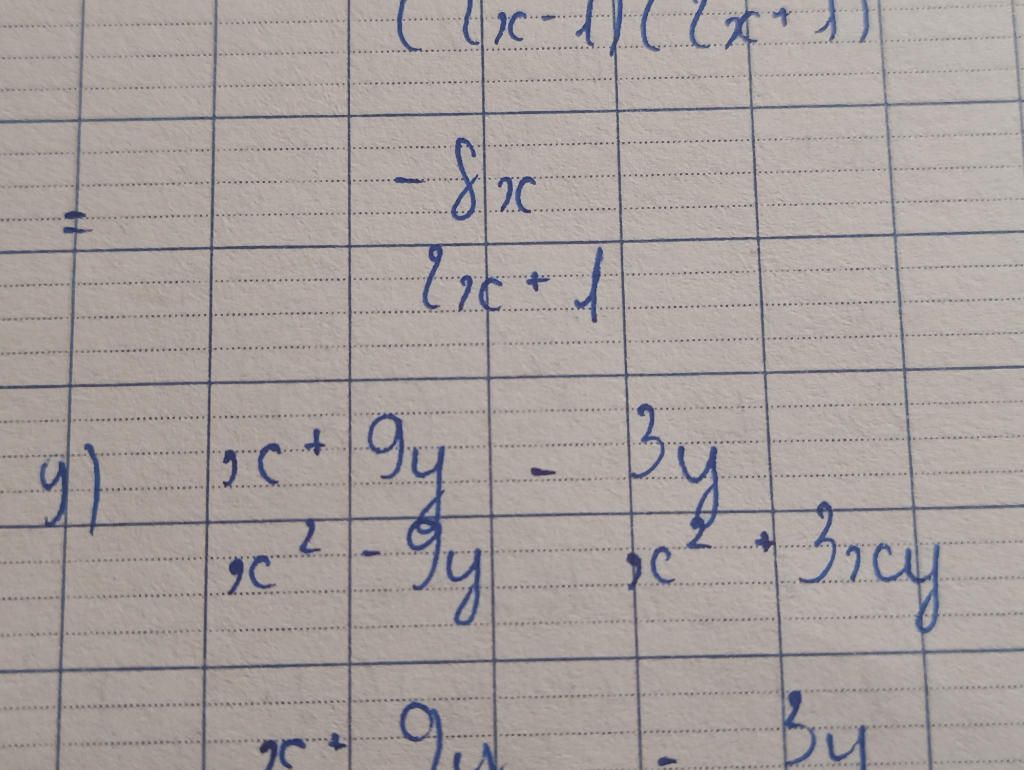 (2x-1)(2x+1)
= -8x
2x+1
y) x+9y - 3y
x² - 9y x² + 3xy
x+ 9y - 3y